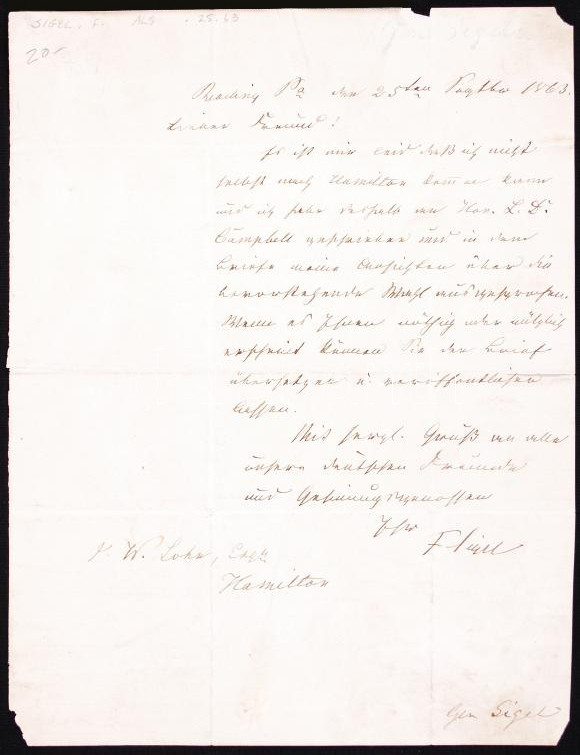 SIGEL, F. ALS .25.63
20-
Gen Sigel
Reading Pa den 25ten Septbr 1863.
Lieber Freund!
Es ist mir leid daß ich nicht
selbst nach Hamilton kommen kann
und ich habe deshalb an Hon. L. D.
Campbell geschrieben und in dem
Briefe meine Ansichten über die
bevorstehende Wahl ausgesprochen.
Wenn es Ihnen nöthig oder nützlich
erscheint können Sie den Brief
übersetzen u. veröffentlichen
lassen.
Mit herzl. Gruß an alle
unsere deutschen Freunde
und Gesinnungsgenossen
Ihr
F Sigel
W. Lohr, Esq
Hamilton
Gen Sigel